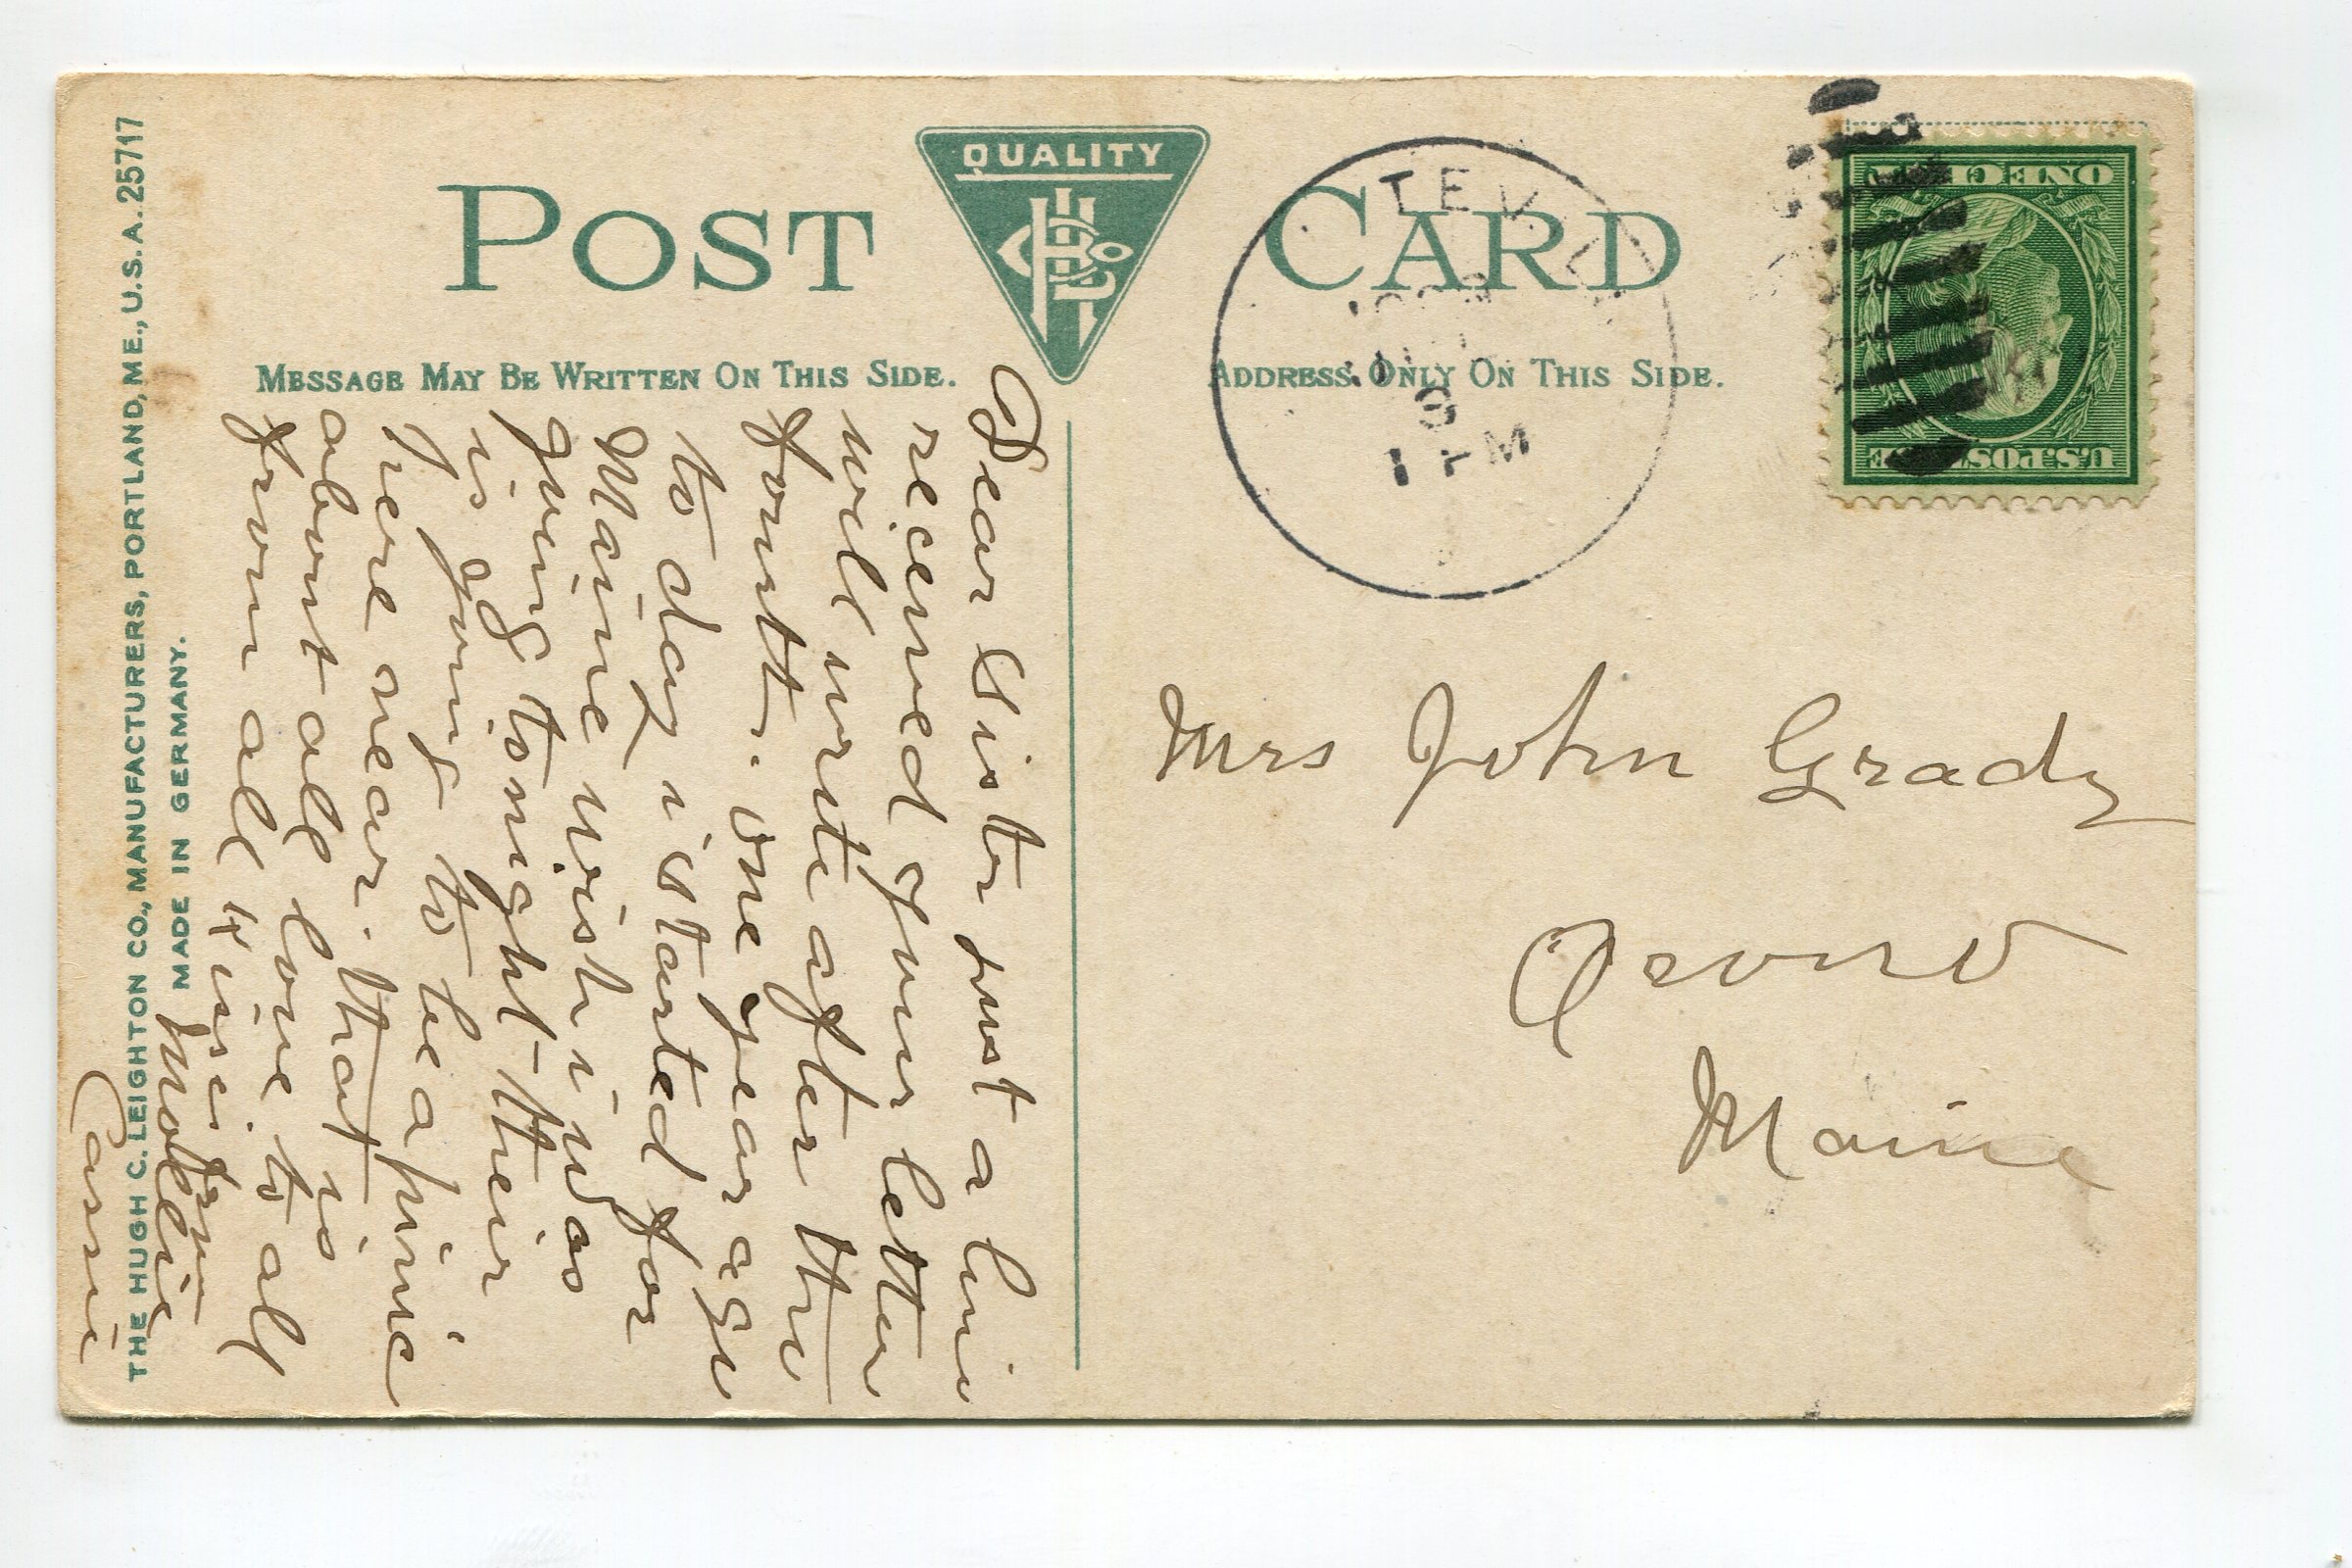 POST CARD
QUALITY
HCL Co
MESSAGE MAY BE WRITTEN ON THIS SIDE.
ADDRESS ONLY ON THIS SIDE.
THE HUGH C. LEIGHTON CO., MANUFACTURERS, PORTLAND, ME., U.S.A. 25717
MADE IN GERMANY.
TEVILLE
1 PM
ONE CENT
U.S. POSTAGE
Dear Sister just a line
received your letter
will write after the
fourth. one year ago
to day i started for
Maine wish i was
going tonight their
is going to be a picnic
here near. that is
about all love to all
from all
from
Mollie
Cassie
Mrs John Grady
Maine